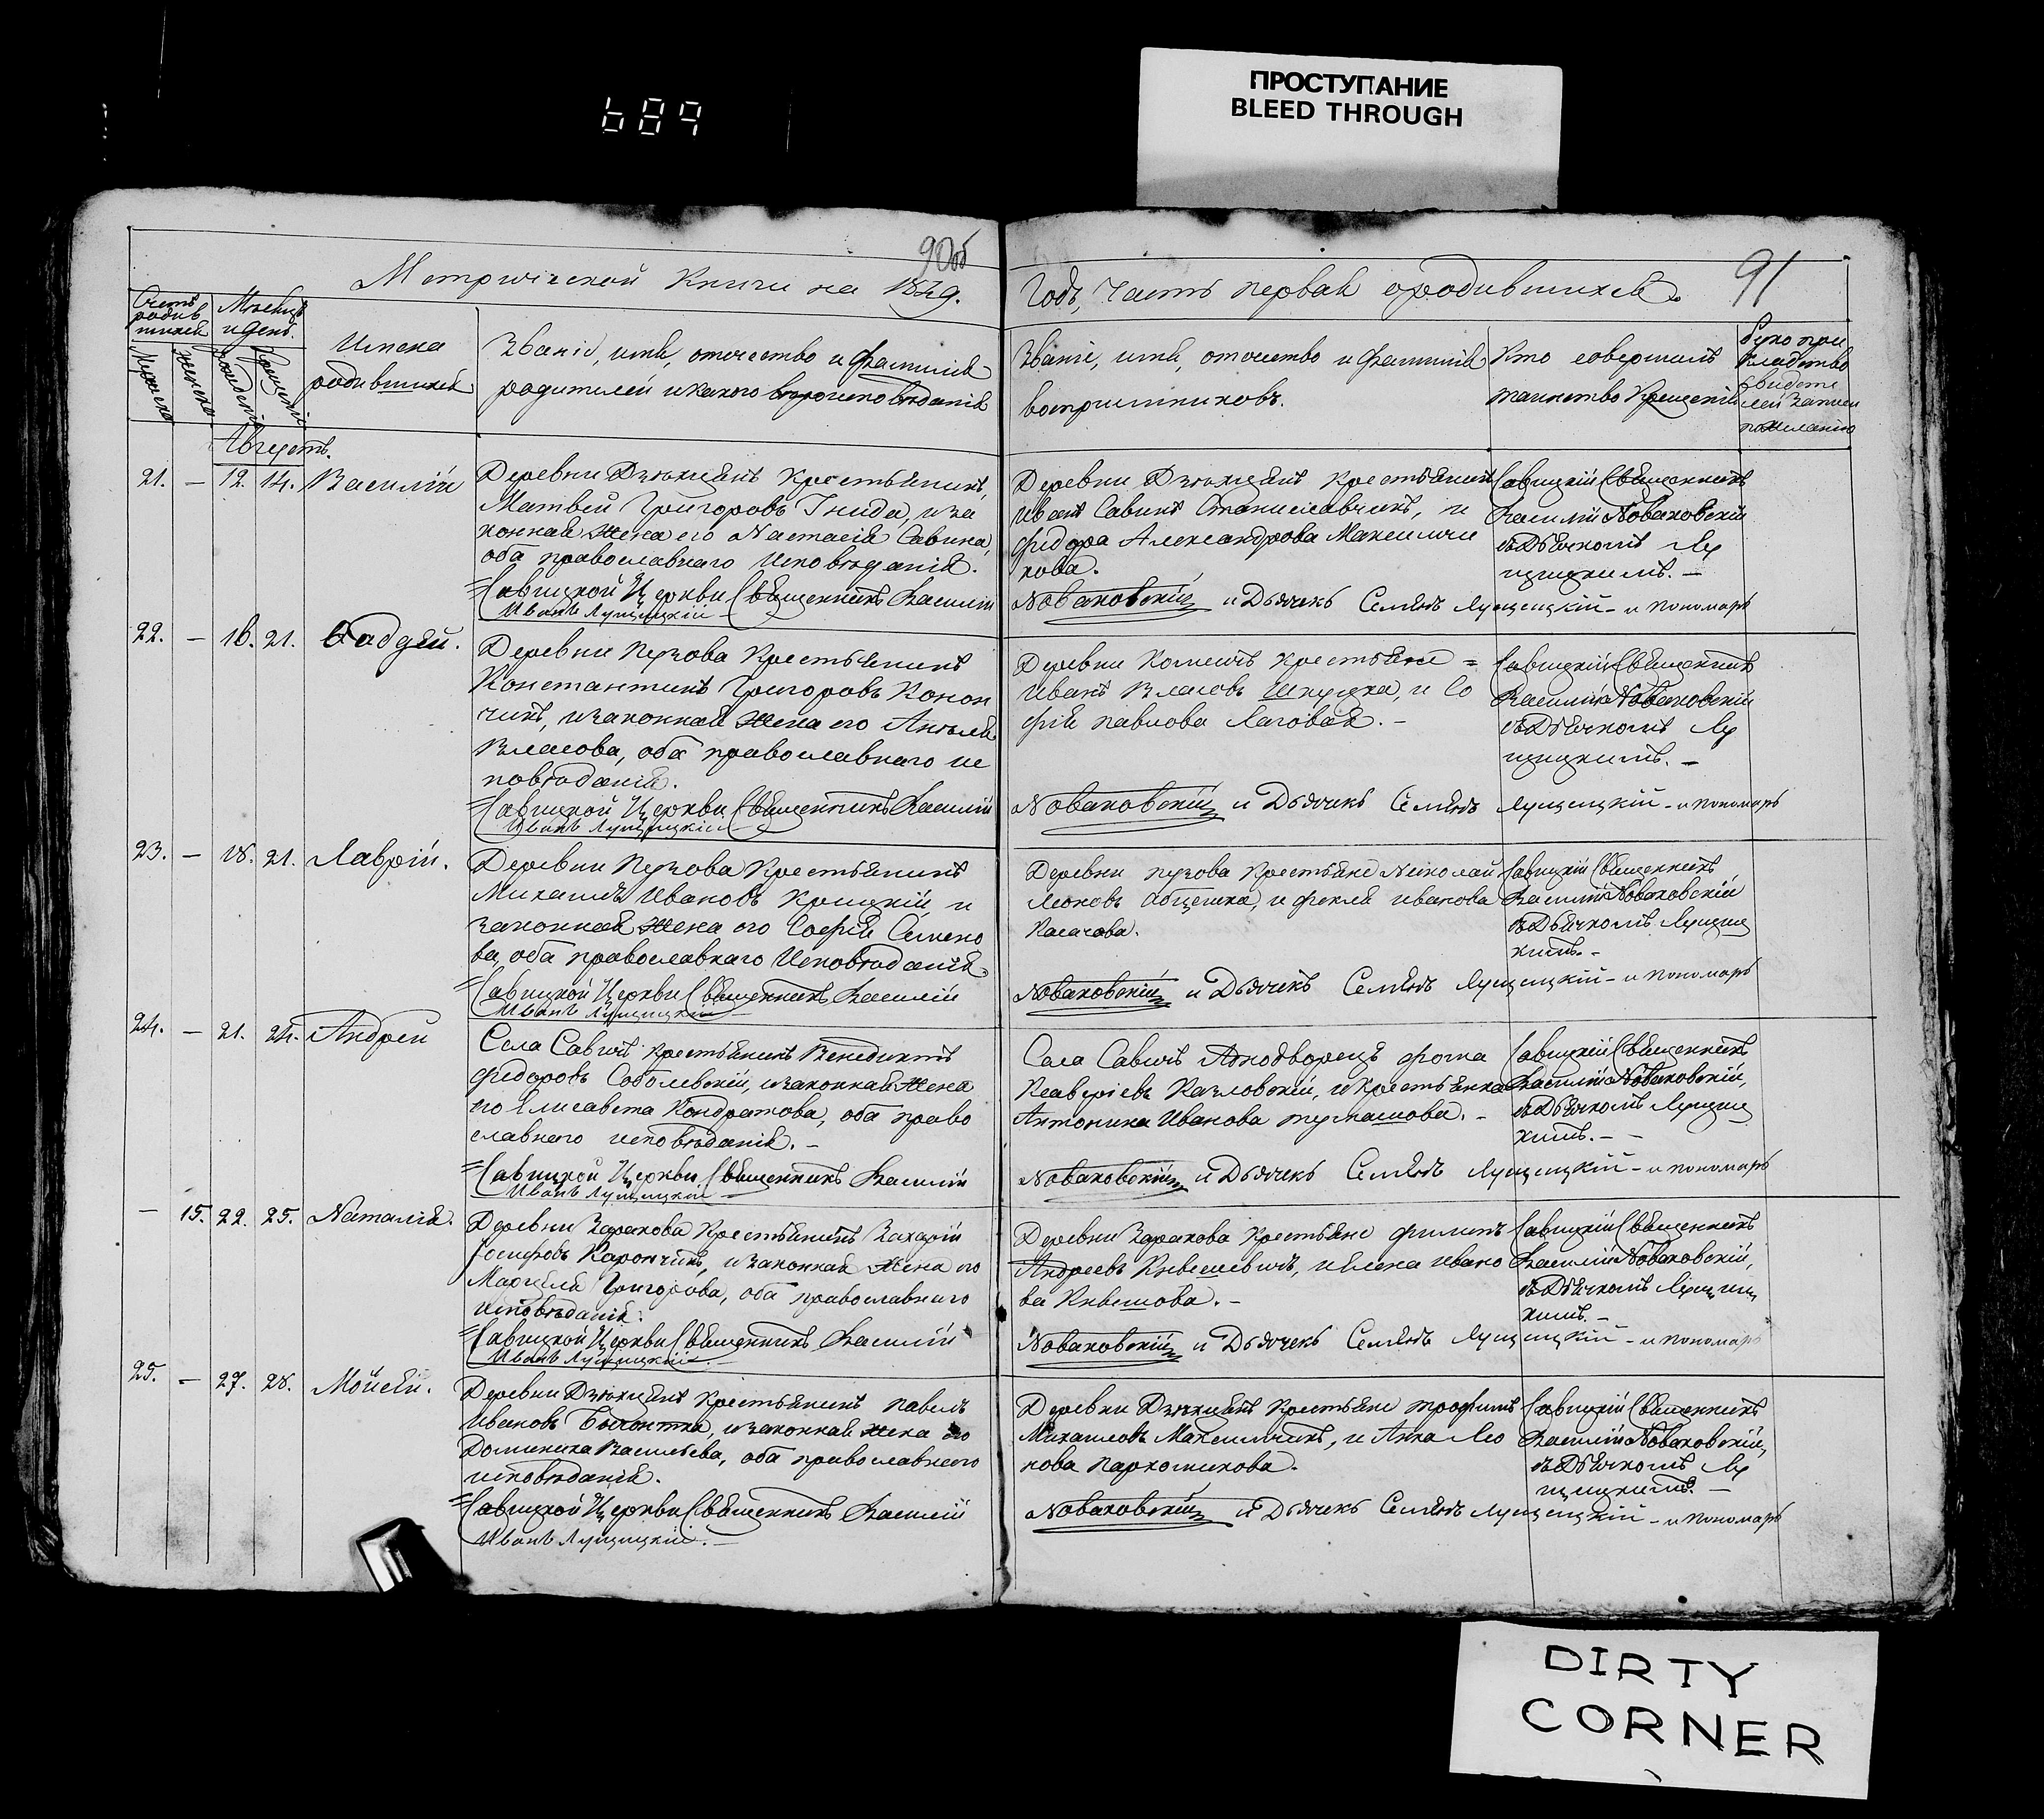 689
ПРОСТУПАНИЕ
BLEED THROUGH
90об
91
Метрической Книги на 1849.
Годъ, Часть первая о родившихся.
Счетъ родившихся
Мѣсяцъ и день.
Мужеска
женска
рожденія
крещенія
Имена
родившихся
Званіе, имя, отчество и фамилія
родителей и какого вѣроисповѣданія
Званіе, имя, отчество и фамилія
воспріемниковъ.
Кто совершалъ
таинство Крещенія
Руко при
кладство
свидете
лей записи
по желанію
Августъ.
21. — 12. 14. Василій
Деревни Дзюхцянъ Крестьянинъ,
Матвей Григоровъ Гнида, и за
конная жена его Настасія Савина,
оба православнаго Исповѣданія.
Деревни Дзюхцянъ Крестьянинъ
Иванъ Савинъ Станиславчикъ, и
Фіодора Александрова Максимчи
кова.
Савицкій Священникъ
Василій Новаковскій
съ Дьячкомъ Лу
щицкимъ. —
=Савицкой Церкви Священникъ Василій Новаковскій и Дьячекъ Семіонъ Лущицкій - и пономарь
Иванъ Лущицкій
22. — 16. 21. Фадѣй.
Деревни Пузова Крестьянинъ
Константинъ Григоровъ Конон
чикъ, и законная жена его Анѣля
Власова, оба православнаго ис
повѣданія.
Деревни крестьяне =
Иванъ Власовъ Шкуцка, и Со
фія Павлова Лаговая. -
Савицкій Священникъ
Василій Новаковскій
съ Дьячкомъ Лу
щицкимъ. —
=Савицкой Церкви Священникъ Василій Новаковскій и Дьячекъ Семіонъ Лущицкій - и пономарь
Иванъ Лущицкій
23. — 18. 21. Лаврій.
Деревни Пузова Крестьянинъ
Михаилъ Ивановъ Крицкій, и
законная жена его Софія Семено
ва, оба православнаго Исповѣданія.
Деревни Пузова Крестьяне Николай
Леоновъ и Фекля Иванова
Касачова.
Савицкій Священникъ
Василій Новаковскій
съ Дьячкомъ Лущиц
кимъ. -
=Савицкой Церкви Священникъ Василій Новаковскій и Дьячекъ Семіонъ Лущицкій - и пономарь
Иванъ Лущицкій
24. — 21. 24. Андрей
Села Савичъ крестьянинъ Венедиктъ
Федоровъ Соболевскій, и законная жена
его Елисавета Кондратова, оба право
славнаго исповѣданія. -
Села Савичъ Однодворецъ Фома
Ксаверіевъ Казловскій, и Крестьянка
Антонина Иванова
Савицкій Священникъ
Василій Новаковскій,
съ Дьячкомъ Лущиц
кимъ. - -
=Савицкой Церкви Священникъ Василій Новаковскій и Дьячекъ Семіонъ Лущицкій - и пономарь
Иванъ Лущицкій
— 15. 22. 25. Наталія.
Деревни Заракова Крестьянинъ Захарій
Іосифовъ Карончикъ, и законная жена его
Марцеля Григорова, оба православнаго
исповѣданія.
Деревни Заракова Крестьяне Филипъ
Андреевъ Квешевичъ, и Елена Ивано
ва Квешова. -
Савицкій Священникъ
Василій Новаковскій,
съ Дьячкомъ Лущиц
кимъ. -
=Савицкой Церкви Священникъ Василій Новаковскій и Дьячекъ Семіонъ Лущицкій - и пономарь
Иванъ Лущицкій. -
25. — 27. 28. Мойсѣй.
Деревни Дзюхцянъ Крестьянинъ Павелъ
Ивановъ и законная жена его
Доминика Васильева, оба православнаго
исповѣданія.
Деревни Дзюхцянъ Крестьяне Трофимъ
Михаиловъ Максимчикъ, и Анна Лео
нова Пархомикова.
Савицкій Священникъ
Василій Новаковскій,
съ Дьячкомъ Лу
щицкимъ. —
=Савицкой Церкви Священникъ Василій Новаковскій и Дьячекъ Семіонъ Лущицкій - и пономарь
Иванъ Лущицкій. -
DIRTY
CORNER